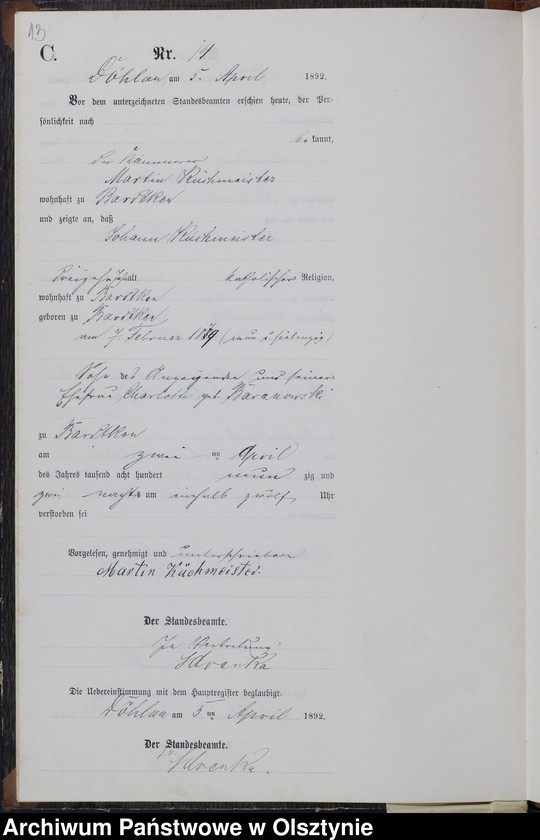 13
C.
Nr. 14
Döhlau am 5. April 1892.
Vor dem unterzeichneten Standesbeamten erschien heute, der Per-
sönlichkeit nach
bekannt,
der Kämmerer
Martin Küchmeister
wohnhaft zu Bardtken
und zeigte an, daß
Johann Küchmeister
Dreizehn Jahr alt katholischer Religion,
wohnhaft zu Bardtken
geboren zu Bardtken
am 7. Februar 1879 (neun u. siebenzig)
Sohn des Anzeigenden und seiner
Ehefrau Charlotte geb. Baranowski
zu Bardtken
am zwei ten April
des Jahres tausend acht hundert neun zig und
zwei nachts um einhalb zwölf Uhr
verstorben sei
Vorgelesen, genehmigt und unterschrieben
Martin Küchmeister.
Der Standesbeamte.
In Vertretung:
Die Uebereinstimmung mit dem Hauptregister beglaubigt.
Döhlau am 5ten April 1892.
Der Standesbeamte.
Archiwum Państwowe w Olsztynie